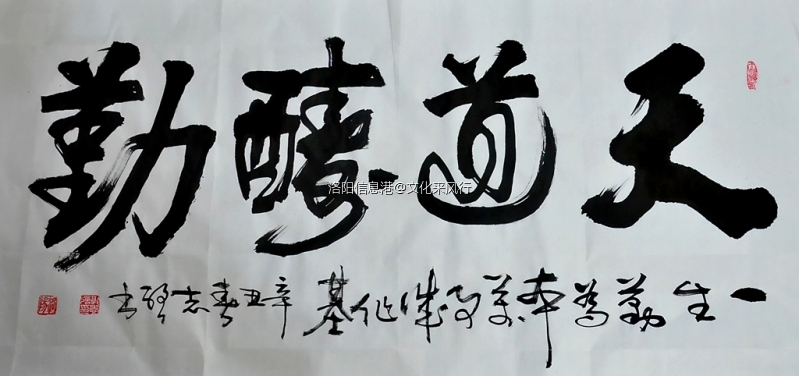 天道酬勤
一生勤为本万事诚作基 辛丑春志强书
洛阳信息港@文化采风行